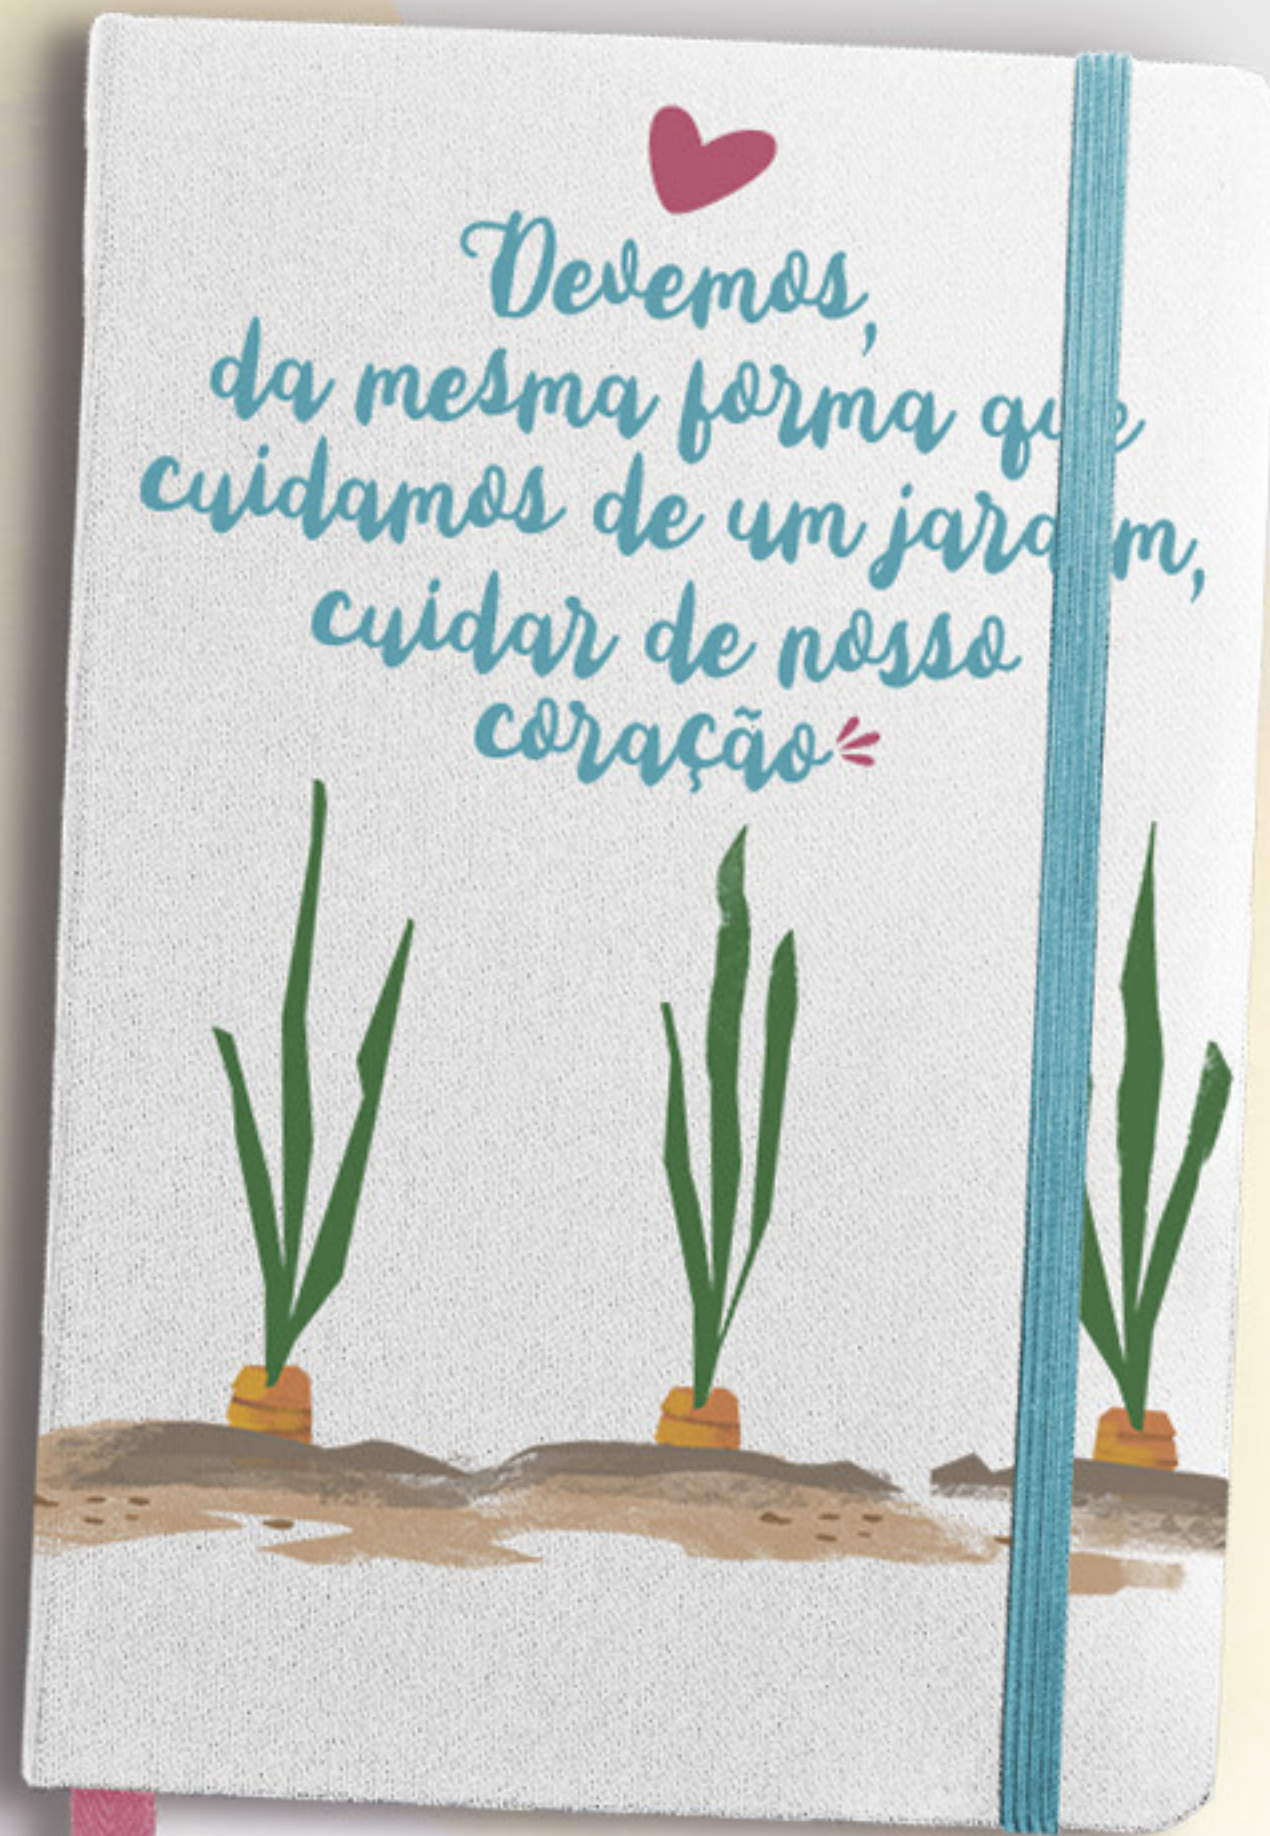 Devemos,
da mesma forma que
cuidamos de um jardim,
cuidar de nosso
coração